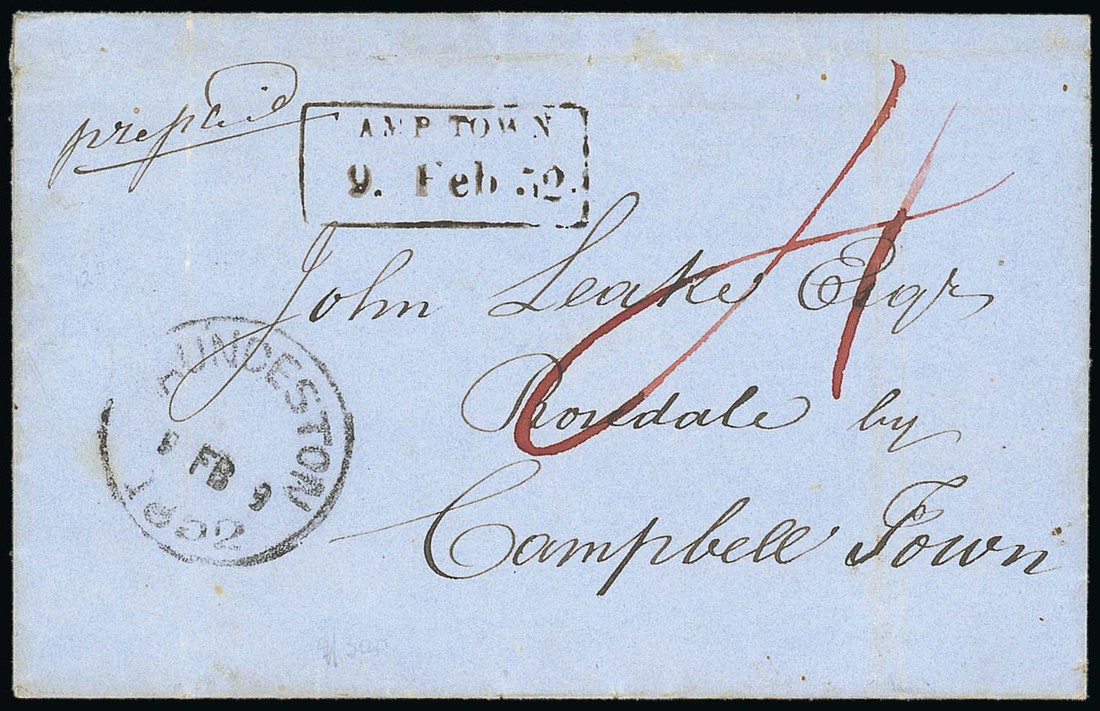 prepaid
AMP TOWN
9. Feb 52.
4
John Leake Esqr
Rosedale by
Campbell Town
AUNCESTON
FB 9